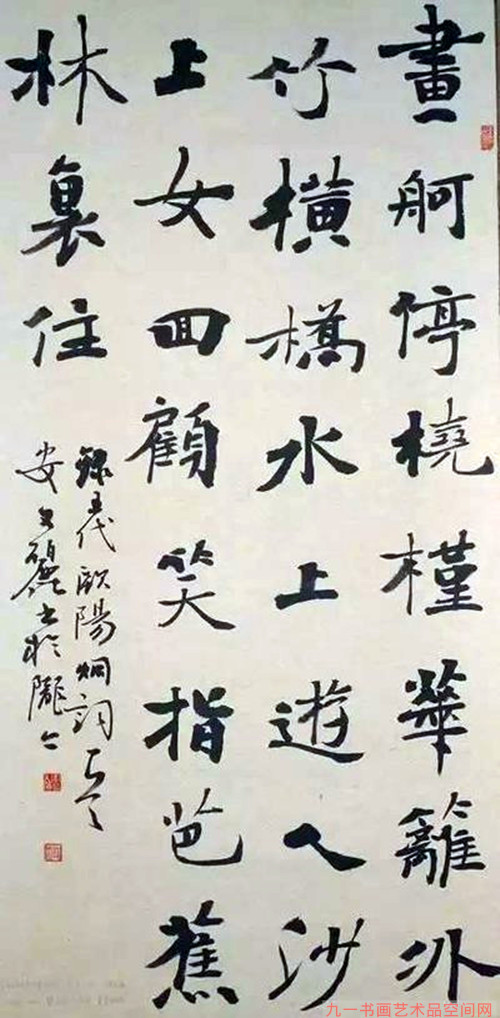 畫舸停橈槿華籬外
竹橫橋水上遊人沙
上女回顧笑指芭蕉
林裏住
錄五代歐陽炯詞
安文麗書於隴上
九一书画艺术品空间网